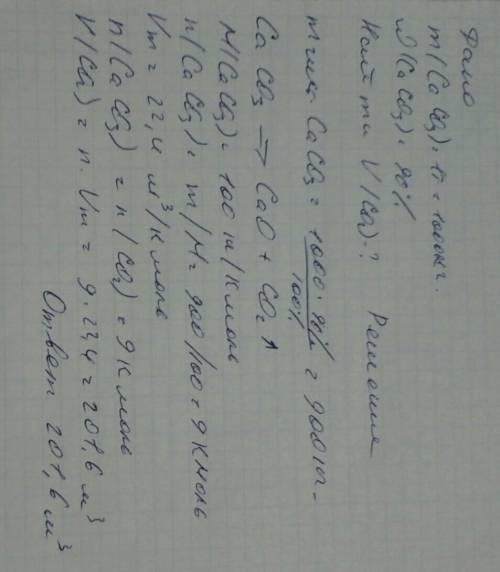 Дано
m(CaCO₃) = 1т = 1000кг.
ω(CaCO₃) = 90%
Найти V(CO₂)-?
Решение
m чист. CaCO₃ = 1000 · 90% / 100% = 900 кг.
CaCO₃ → CaO + CO₂↑
M(CaCO₃) = 100 кг/кмоль
n(CaCO₃) = m/M = 900/100 = 9 кмоль
Vm = 22,4 м³/кмоль
n(CaCO₃) = n(CO₂) = 9 кмоль
V(CO₂) = n · Vm = 9 · 22,4 = 201,6 м³
Ответ 201,6 м³